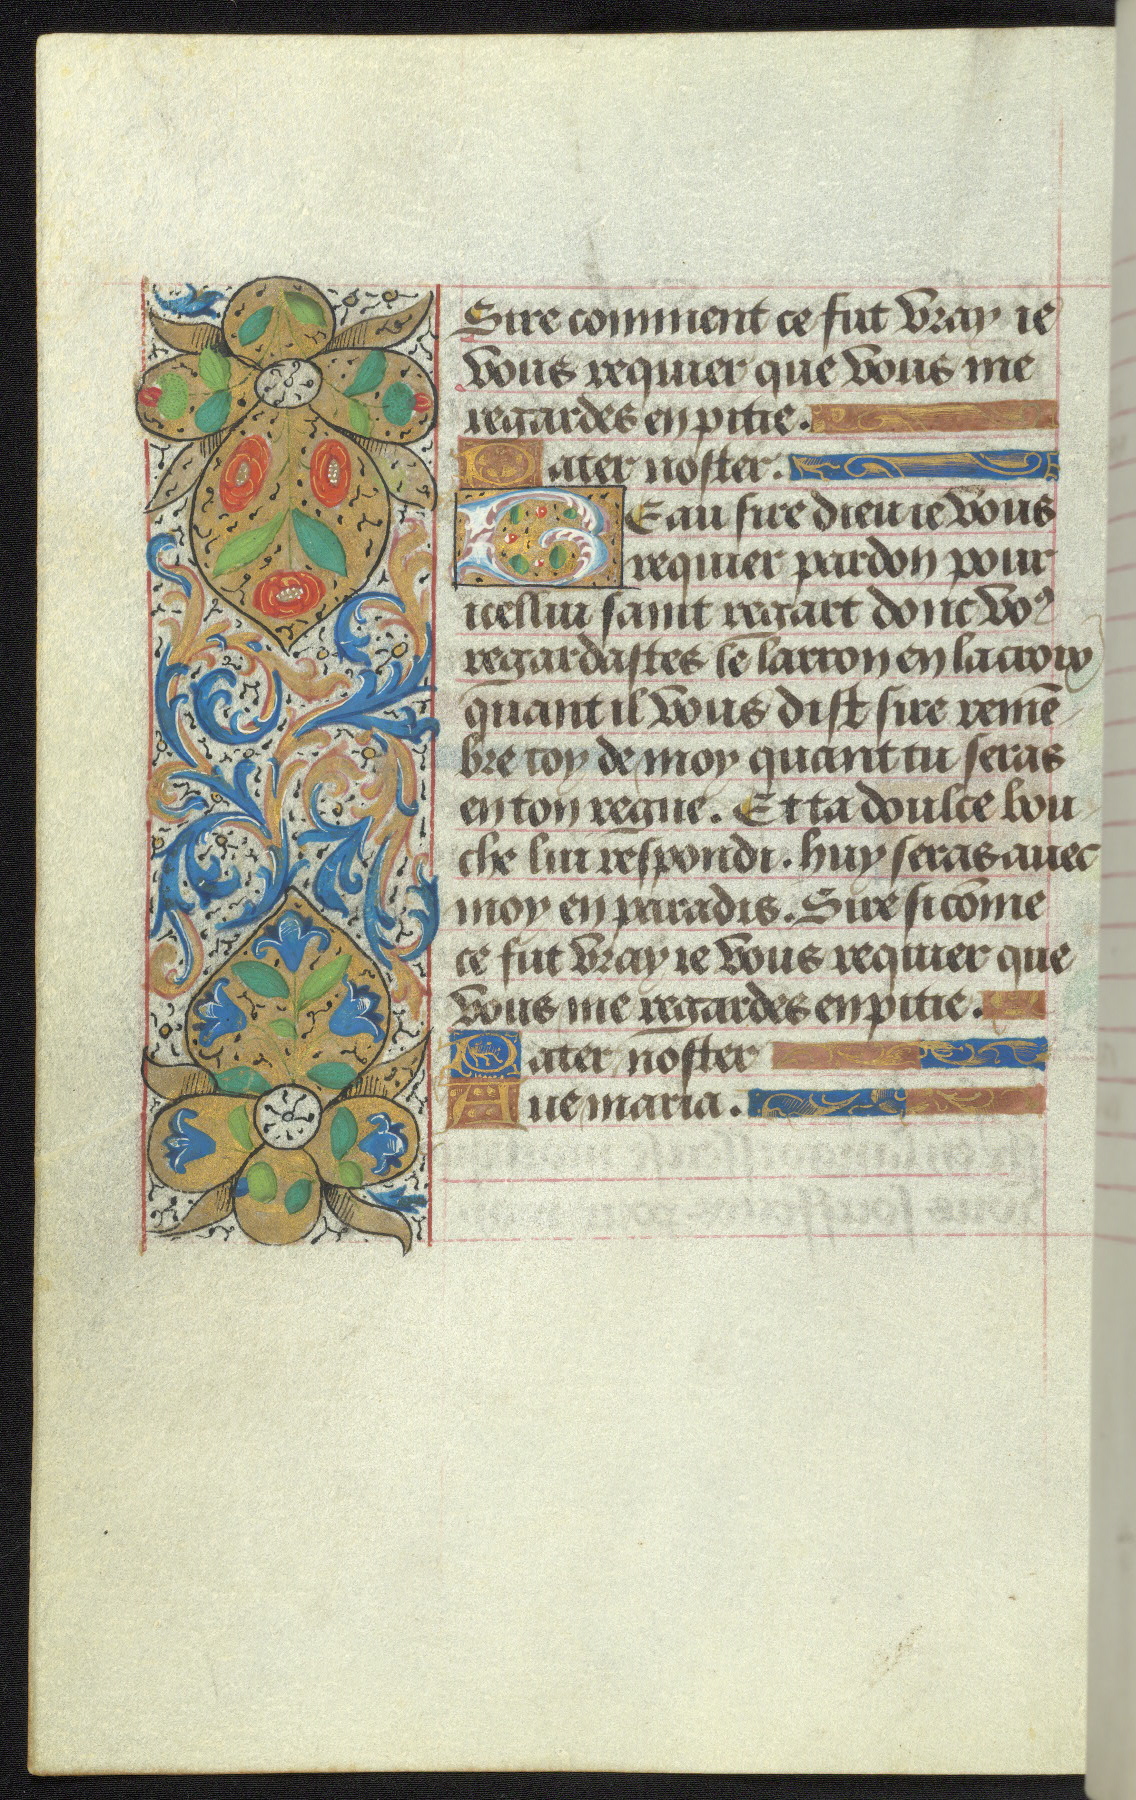 Sire comment ce fut vray ie
vous requier que vous me
regardes en pitie.
Pater noster.
Beau sire dieu ie vous
requier pardon pour
icellui saint regart donc voꝰ
regardastes le larron en la croix
quant il vous dist sire remē
bre toy de moy quant tu seras
en ton regne. Et ta doulce bou
che lui respondi. huy seras auec
moy en paradis. Sire si cōme
ce fut vray ie vous requier que
vous me regardes en pitie.
Pater noster
Aue maria.